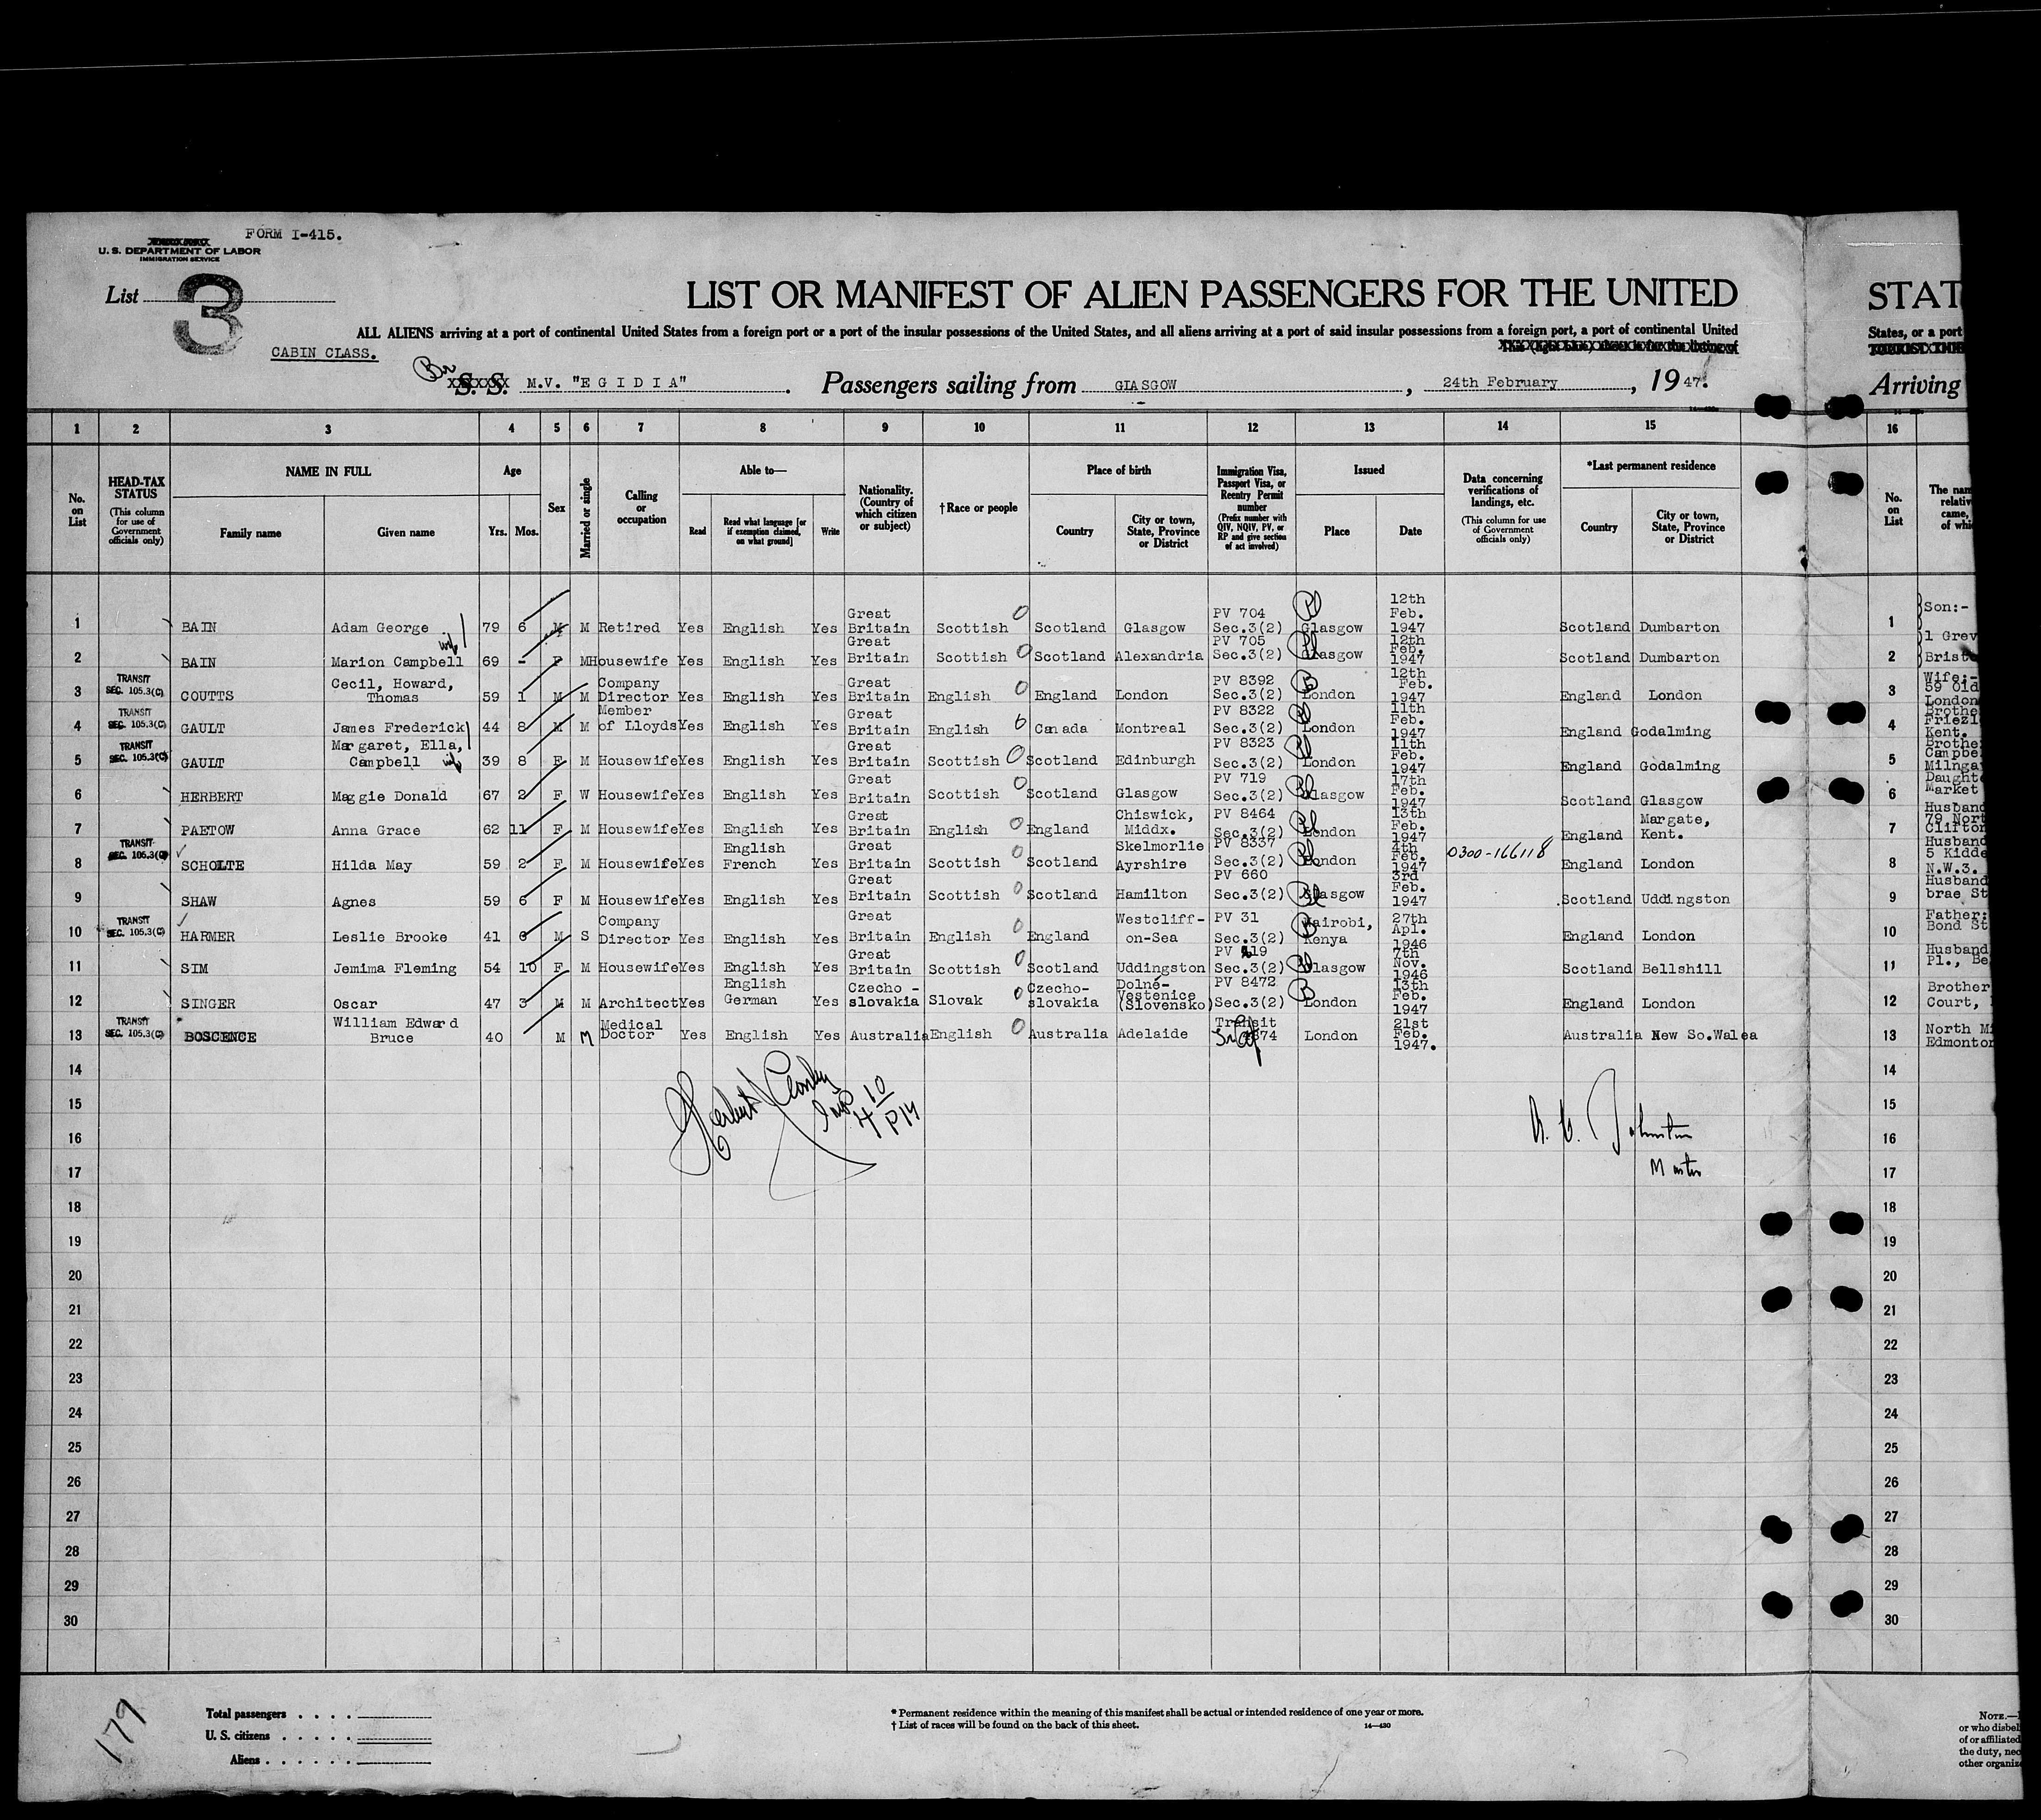 FORM I-415.
U. S. DEPARTMENT OF LABOR
IMMIGRATION SERVICE
List 3
LIST OR MANIFEST OF ALIEN PASSENGERS FOR THE UNITED
STAT
ALL ALIENS arriving at a port of continental United States from a foreign port or a part of the insular possessions of the United States, and all aliens arriving at a port of said insular possessions from a foreign port, a port of continental United
States, or a port
CABIN CLASS.
Br S. S. M.V. "E G I D I A" . Passengers sailing from GLASGOW , 24th February , 19 47.
Arriving
1 2 3 4 5 6 7 8 9 10 11 12 13 14 15 16
No. on List
HEAD-TAX STATUS
(This column for use of Government officials only)
NAME IN FULL
Family name
Given name
Age
Yrs. Mos.
Sex
Married or single
Calling or occupation
Able to—
Read
Read what language [or if exemption claimed, on what ground]
Write
Nationality. (Country of which citizen or subject)
†Race or people
Place of birth
Country
City or town, State, Province or District
Immigration Visa, Passport Visa, or Reentry Permit number
(Prefix number with QIV, NQIV, PV, or RP and give section of act involved)
Issued
Place
Date
Data concerning verifications of landings, etc.
(This column for use of Government officials only)
*Last permanent residence
Country
City or town, State, Province or District
No. on List
The nam
relativ
came,
of whi
1 BAIN Adam George 79 6 M M Retired Yes English Yes Great Britain Scottish Scotland Glasgow PV 704 Sec.3(2) Glasgow 12th Feb. 1947 Scotland Dumbarton 1 Son:-
1 Grev
2 BAIN Marion Campbell wife 69 - F M Housewife Yes English Yes Great Britain Scottish Scotland Alexandria PV 705 Sec.3(2) Glasgow 12th Feb. 1947 Scotland Dumbarton 2 Brist
3 TRANSIT SEC. 105.3(C) COUTTS Cecil, Howard, Thomas 59 1 M M Company Director Yes English Yes Great Britain English England London PV 8392 Sec.3(2) London 12th Feb. 1947 England London 3 Wife:-
59 Old
London
4 TRANSIT SEC. 105.3(C) GAULT James Frederick 44 8 M M Member of Lloyds Yes English Yes Great Britain English Canada Montreal PV 8322 Sec.3(2) London 11th Feb. 1947 England Godalming 4 Brothe
Friezl
Kent.
5 TRANSIT SEC. 105.3(C) GAULT Margaret, Ella, Campbell wife 39 8 F M Housewife Yes English Yes Great Britain Scottish Scotland Edinburgh PV 8323 Sec.3(2) London 11th Feb. 1947 England Godalming 5 Brothe
Campbe
Milnga
6 HERBERT Maggie Donald 67 2 F W Housewife Yes English Yes Great Britain Scottish Scotland Glasgow PV 719 Sec.3(2) Glasgow 17th Feb. 1947 Scotland Glasgow 6 Daught
Market
7 PAETOW Anna Grace 62 11 F M Housewife Yes English Yes Great Britain English England Chiswick, Middx. PV 8464 Sec.3(2) London 13th Feb. 1947 England Margate, Kent. 7 Husband
79 Nort
Clifton
8 TRANSIT SEC. 105.3(C) SCHOLTE Hilda May 59 2 F M Housewife Yes English French Yes Great Britain Scottish Scotland Skelmorlie Ayrshire PV 8337 Sec.3(2) London 4th Feb. 1947 0300-166118 England London 8 Husband
5 Kidde
N.W.3.
9 SHAW Agnes 59 6 F M Housewife Yes English Yes Great Britain Scottish Scotland Hamilton PV 660 Sec.3(2) Glasgow 3rd Feb. 1947 Scotland Uddingston 9 Husband
brae St
10 TRANSIT SEC. 105.3(C) HARMER Leslie Brooke 41 6 M S Company Director Yes English Yes Great Britain English England Westcliff-on-Sea PV 31 Sec.3(2) Nairobi, Kenya 27th Apl. 1946 England London 10 Father:
Bond St
11 SIM Jemima Fleming 54 10 F M Housewife Yes English Yes Great Britain Scottish Scotland Uddingston PV 19 Sec.3(2) Glasgow 7th Nov. 1946 Scotland Bellshill 11 Husband
Pl., Be
12 SINGER Oscar 47 3 M M Architect Yes English German Yes Czecho-slovakia Slovak Czecho-slovakia Dolné-Vestenice (Slovensko) PV 8472 Sec.3(2) London 13th Feb. 1947 England London 12 Brother
Court,
13 TRANSIT SEC. 105.3(C) BOSCENCE William Edward Bruce 40 M M Medical Doctor Yes English Yes Australia English Australia Adelaide Transit 374 London 21st Feb. 1947. Australia New So.Walea 13 North Mi
Edmonton
14 14
15 15
16 16
17 17
18 18
19 19
20 20
21 21
22 22
23 23
24 24
25 25
26 26
27 27
28 28
29 29
30 30
Herbert
Insp
4 10 PM
Johnston
Master
179
Total passengers . . . .
U. S. citizens . . . . .
Aliens . . . . . .
* Permanent residence within the meaning of this manifest shall be actual or intended residence of one year or more.
† List of races will be found on the back of this sheet.
14—430
NOTE.—
or who disbel
of or affiliated
the duty, nec
other organiz